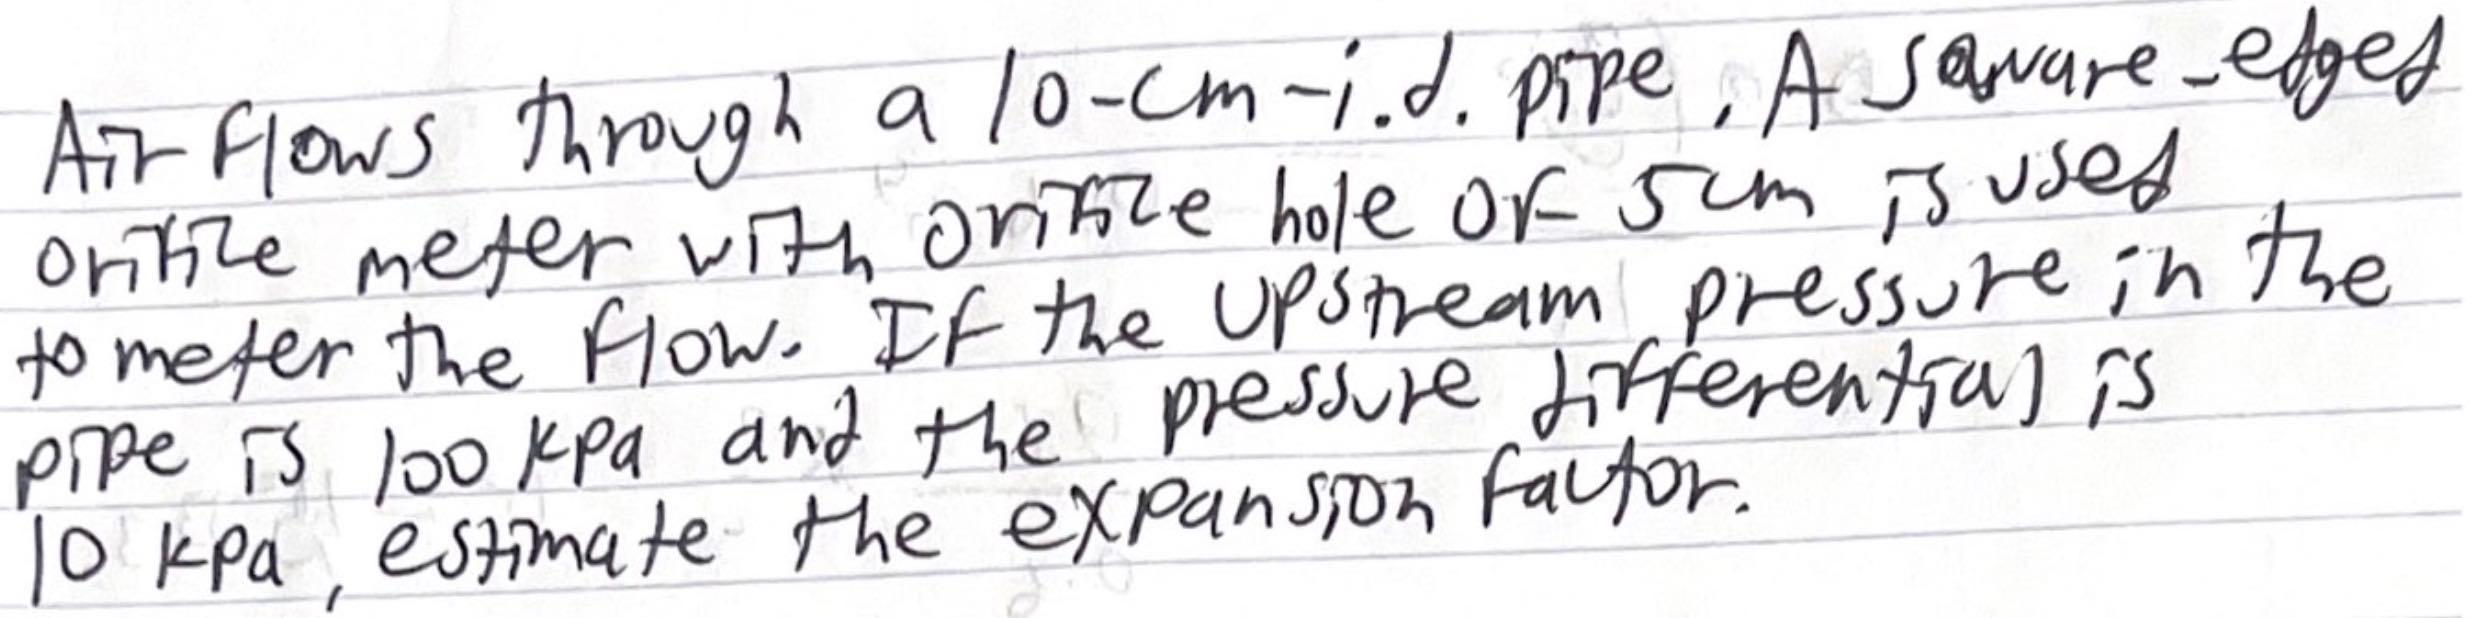 Air flows through a 10-cm-i.d. pipe. A square-edged
orifice meter with orifice hole of 5 cm is used
to meter the flow. If the upstream pressure in the
pipe is 100 kPa and the pressure differential is
10 kPa, estimate the expansion factor.